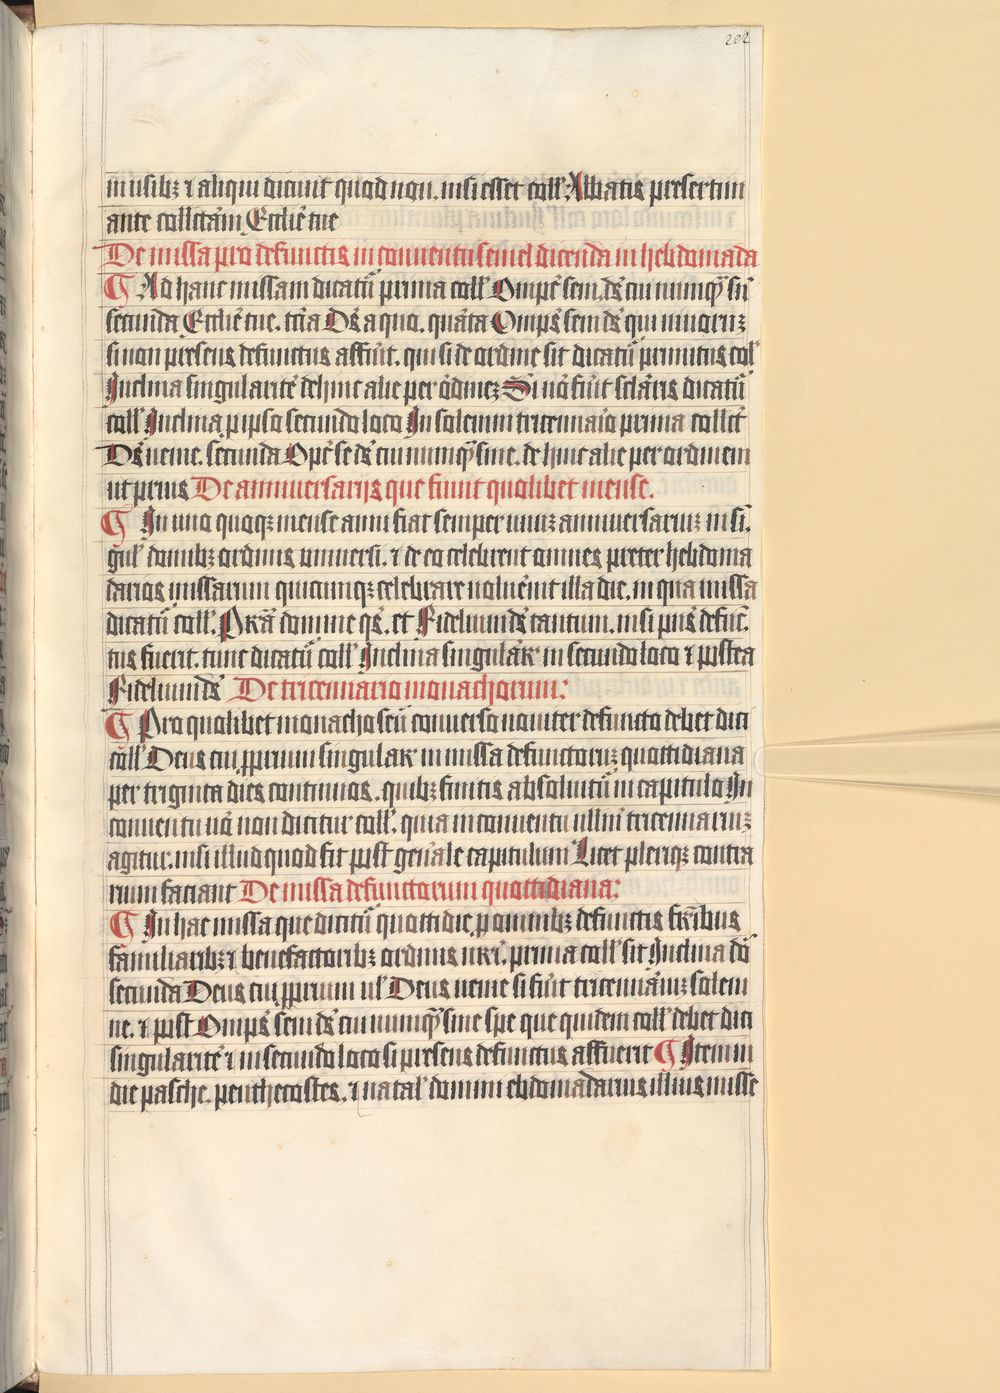 202
in usibꝫ ⁊ aliqui dicunt quod non. nisi esset coll̓. Abbatis presertim
ante collc̄tam̄ Eccl̓ie tue
De missa pro defunctis in conuentu semel dicenda in hebdomada
¶ Ad hanc missam dicatur̄ prima coll̓ Omp̄s sem̄. ds̄ cui numq̄ʒ sn̄
secunda Eccl̓ie tue. tc̄ia Ds̄ a quo. quar̄ta Omp̄s sem̄ ds̄ qui uiuoruꝫ
si non presens defunctus affūit. qui si de ordine sit dicatū primitus col̓
Inclina singularitē dehinc alie per ōdineꝫ Si nō fūit sclār̄is dicatū
coll̓ Inclina p ipso secundo loco In solemni tricennar̄io prima collc̄t
Ds̄ uenie. secunda Op̄s se ds̄ cui numq̄ʒ sine. dehinc alie per ordinem
ut prius De anniuersarijs que fiunt quolibet mense.
¶ In uno quoqꝫ mense anni fiat semper unuꝫ anniuersariuꝫ in si.
gul̓ domibꝫ ordinis uniuersi. ⁊ de eo celebrent omnes preter hebdoma
darios missarum quicumqꝫ celebrare uoluēint illa die. in qua missa
dicatū coll̓. Pr̄a domine qs̄. et Fidelium ds̄ tantum. nisi pn̄s defūc.
tus fuerit. tunc dicatū coll̓ Inclina singular̄r in secundo loco ⁊ postea
Fidelium ds̄ De tricennario monachorum:
¶ Pro quolibet monacho seū conuerso nouiter defuncto debet dici
coll̓ Deus cui ꝓprium singular̄ in missa defunctoruꝫ quottidiana
per triginta dies continuos. quibꝫ finitis absoluitū in capitulo In
conuentu uō non dicitur coll̓. quia in conuentu ullūm tricennariuꝫ
agitur. nisi illud quod fit post genāle capitulum Licet pleriqꝫ contra
rium faciant De missa defunctorum quottidiana:
¶ In hac missa que dicitū quottidie. p omnibꝫ defunctis fr̄ibus
familiaribꝫ ⁊ benefactoribꝫ ordinis nr̄i. prima coll̓ sit Inclina dō
secunda Deus cui ꝓprium ul̓ Deus uenie si fūit tricennār̄iuꝫ solem
ne. ⁊ post Omp̄s sem̄ ds̄ cui numq̄ʒ sine spe que quidem coll̓ debet dici
singularitē ⁊ in secundo loco si presens defunctus affuerit ¶ Item in
die pasche. penthecostes. ⁊ natal̓ domini ebdomadarius illius misse